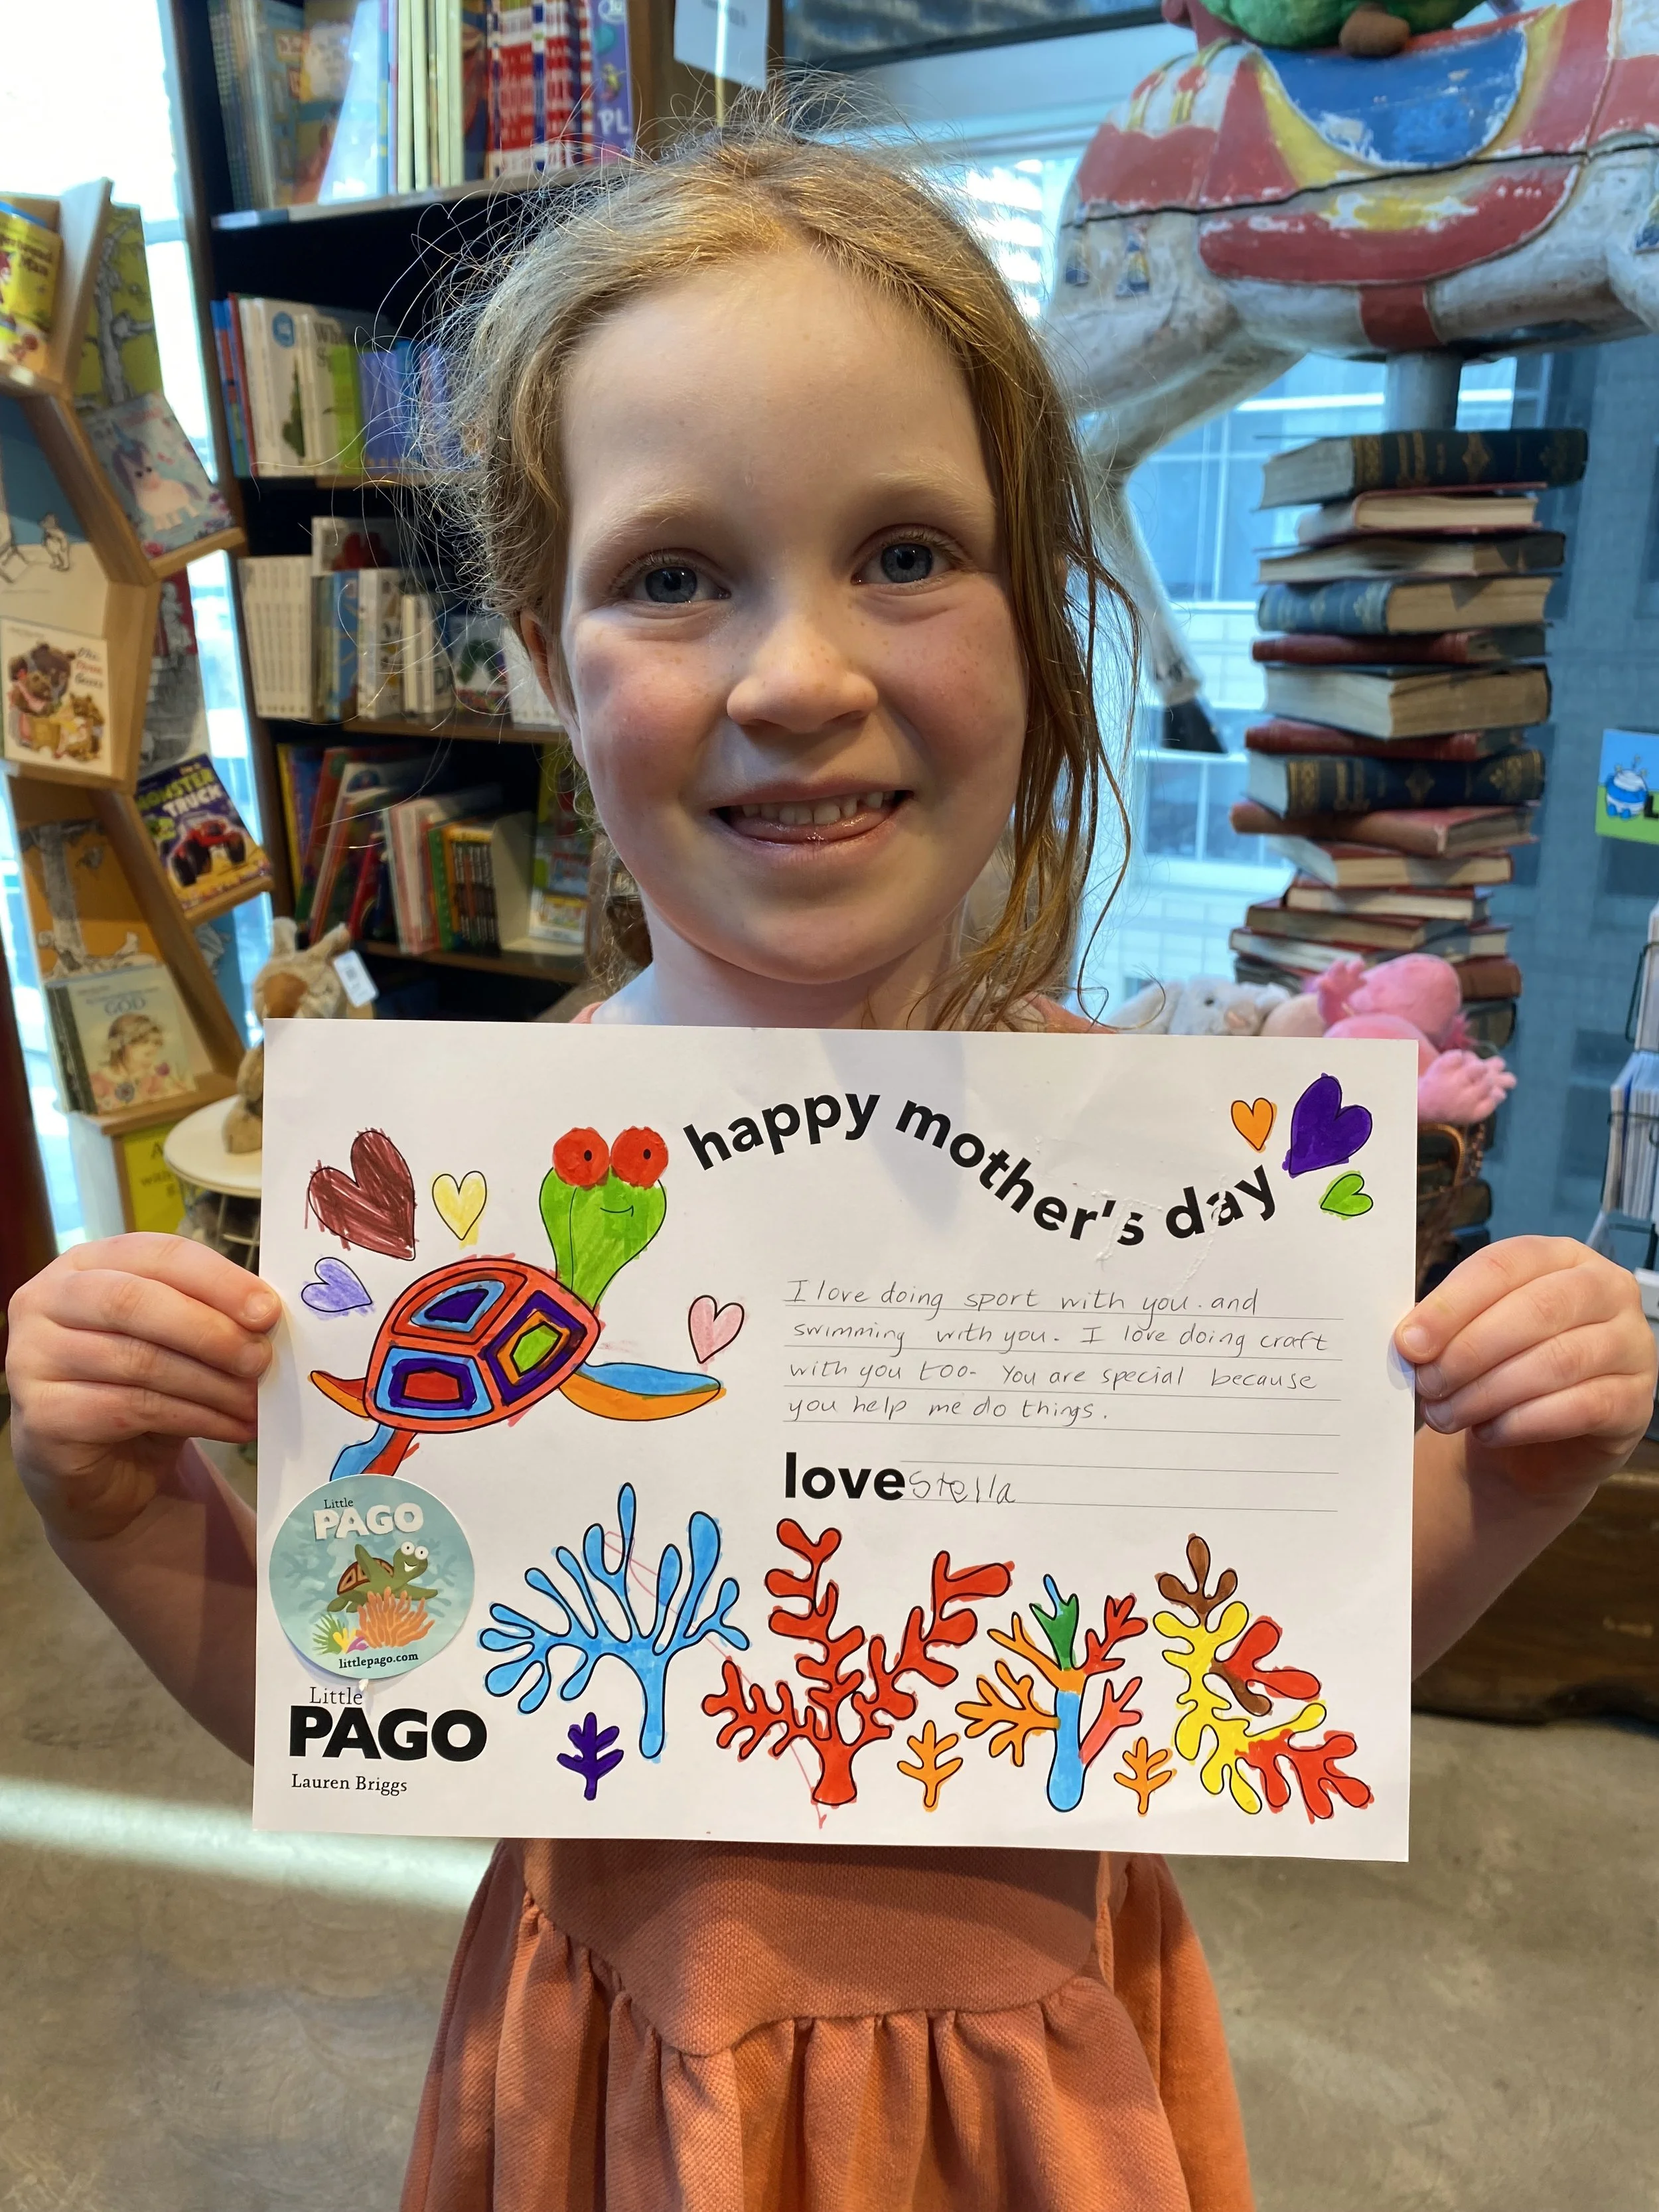 happy mother's day
I love doing sport with you. and
swimming with you. I love doing craft
with you too. You are special because
you help me do things.
love Stella
Little
PAGO
littlepago.com
Little
PAGO
Lauren Briggs
MONSTER
TRUCK
GOD
PL